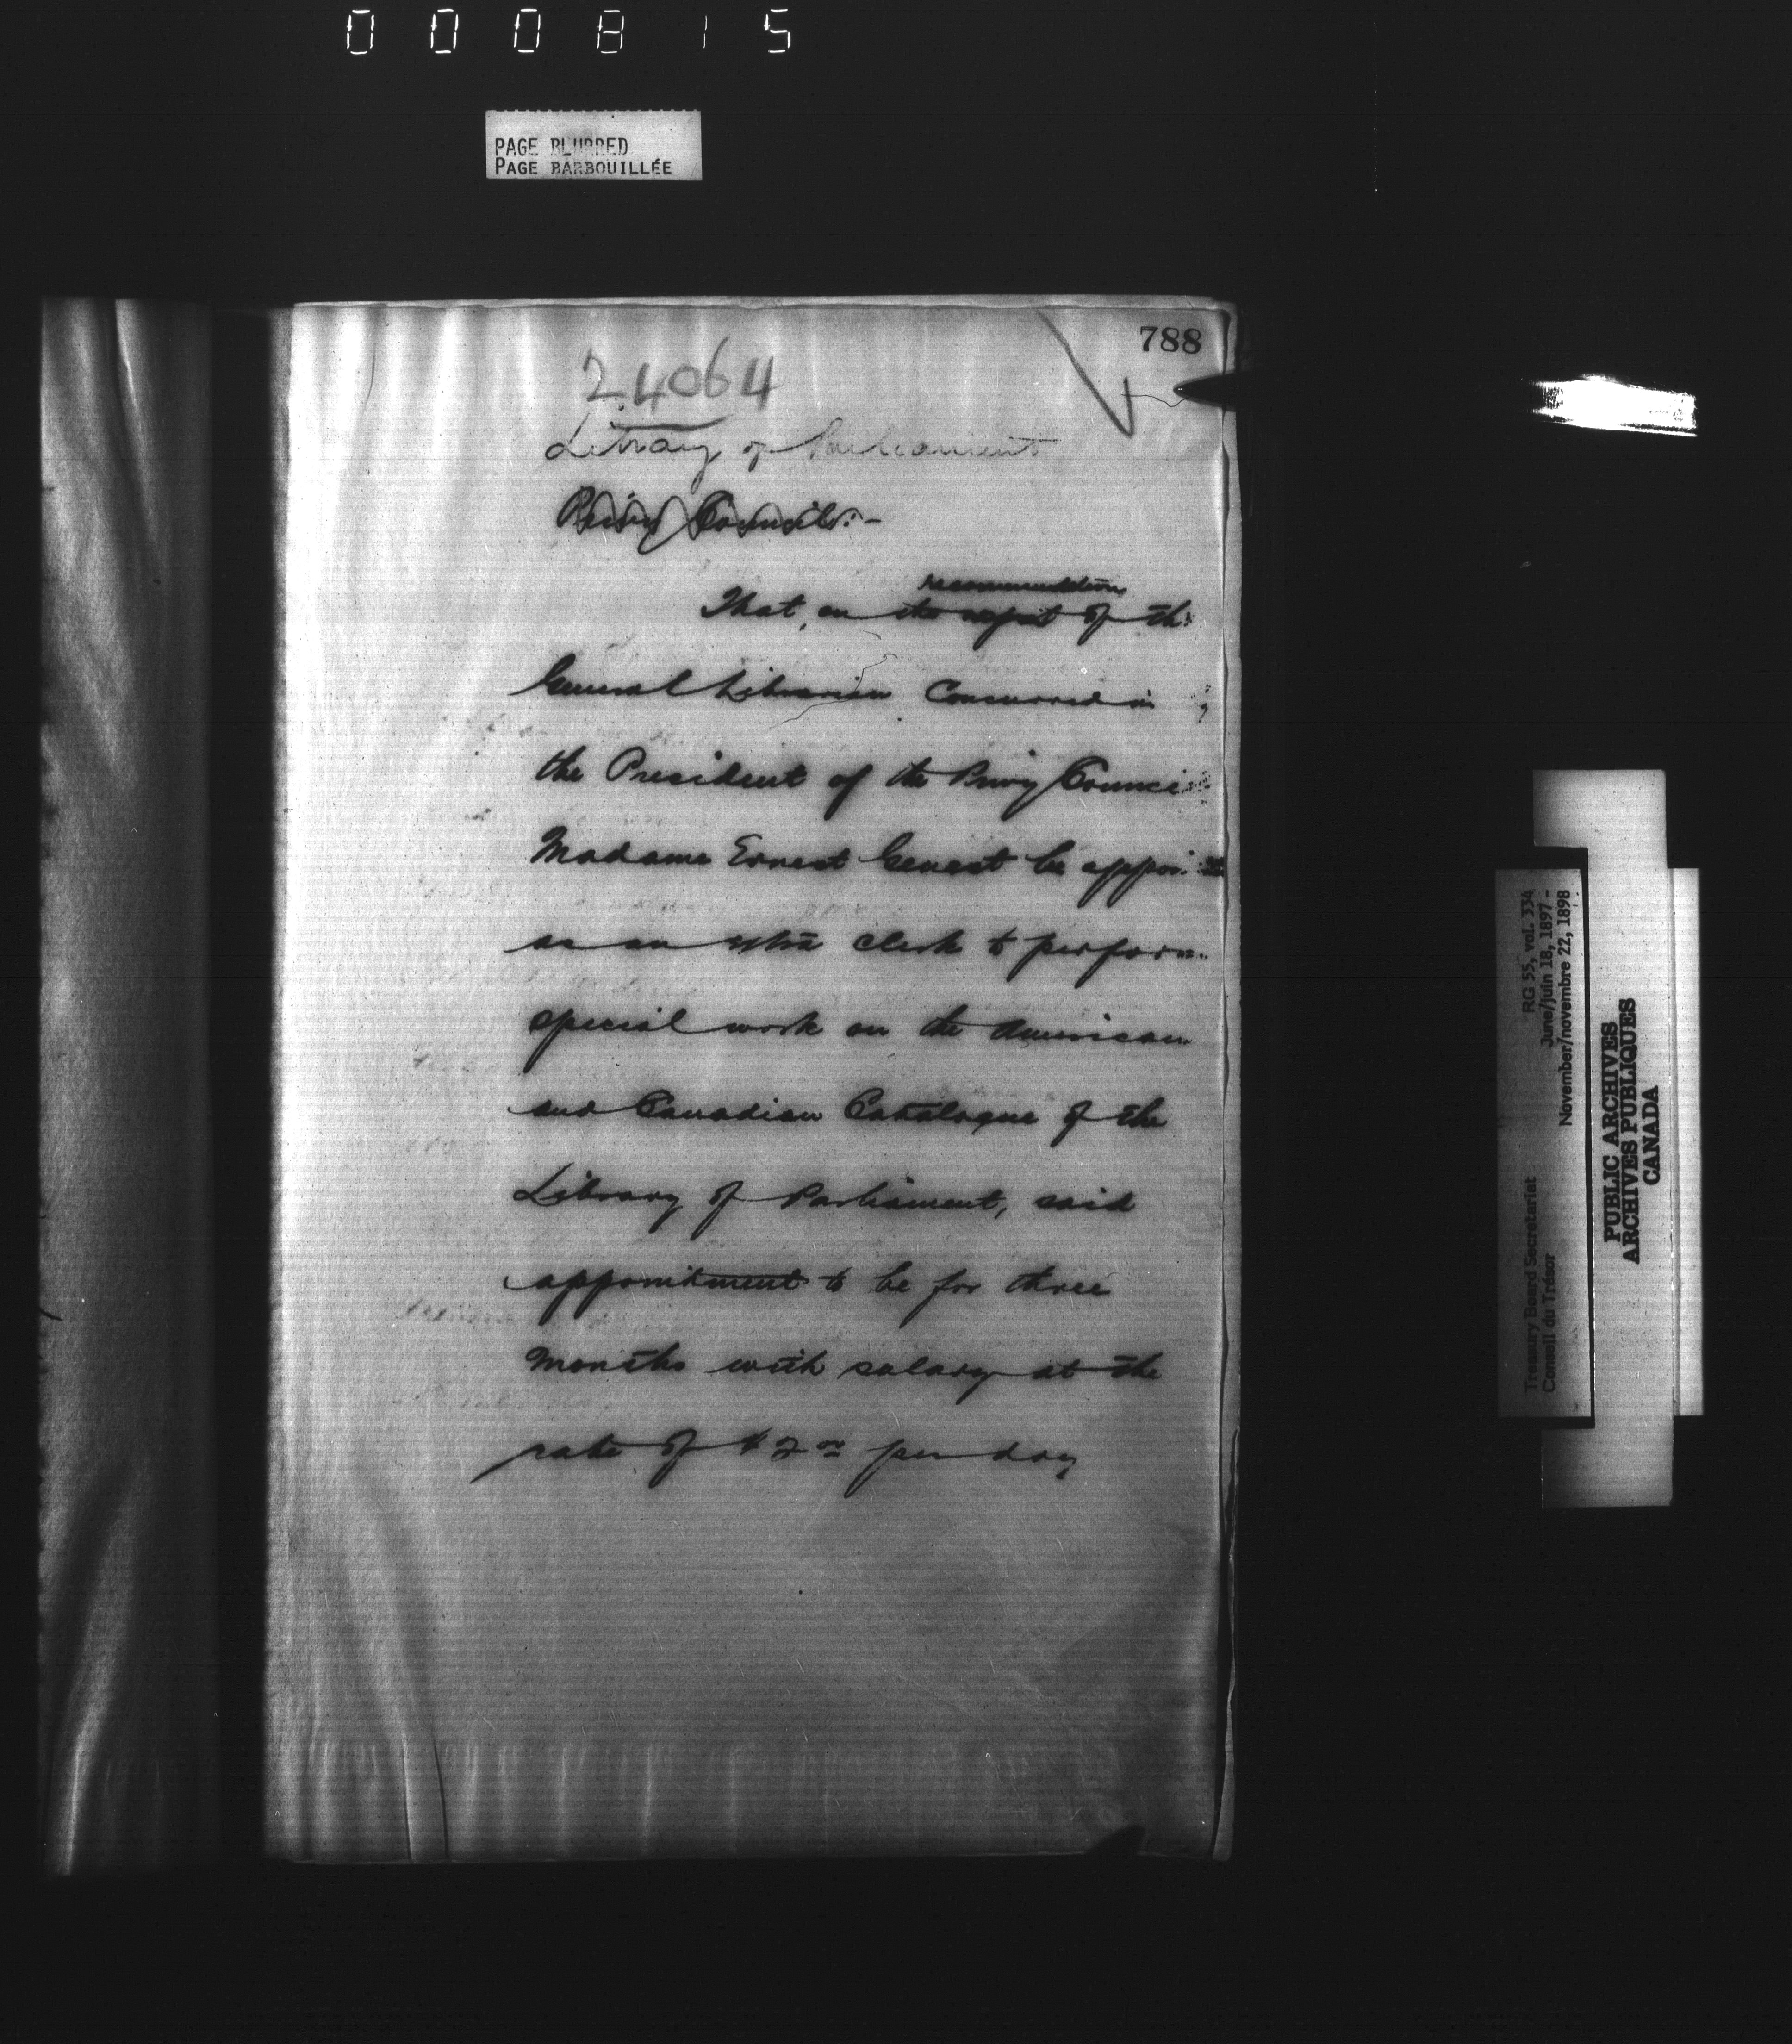 000815
PAGE BLURRED
PAGE BARBOUILLÉE
788
24064
Library of Parliament
Privy Council:-
recommendation
That, on the report of the
General Librarian Concurred in
the President of the Privy Counci
Madame Ernest Genest be appoi
as an extra clerk to perform
special work on the American
and Canadian Catalogue of the
Library of Parliament, said
appointment to be for three
months with salary at the
rate of $2 00 per day
Treasury Board Secretariat RG 55, vol. 334
Conseil du Trésor June/juin 18, 1897 -
November/novembre 22, 1898
PUBLIC ARCHIVES
ARCHIVES PUBLIQUES
CANADA